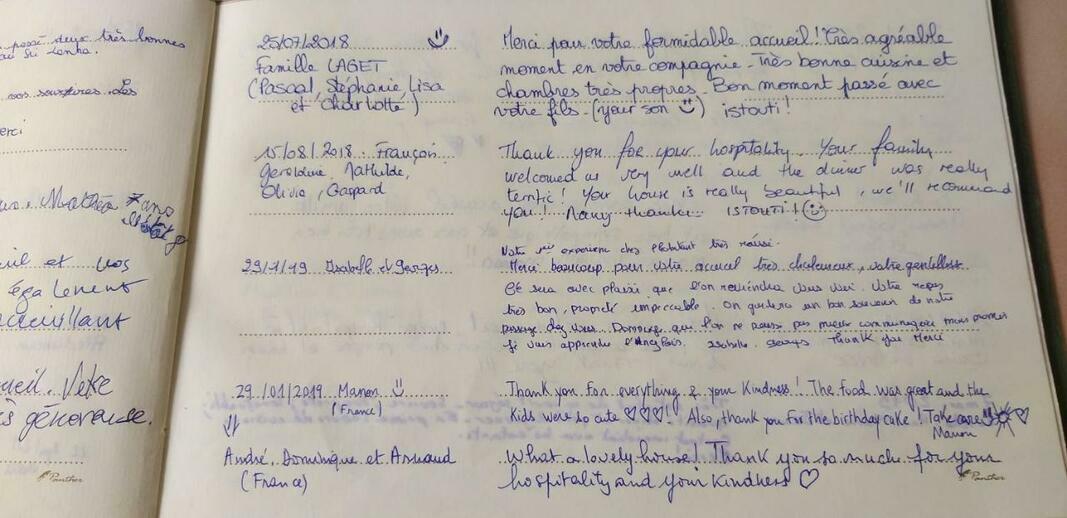 passé deux très bonnes
nos sourires des
Merci
Mathéo 7 ans
et vos
également
accueillant
accueil. Votre
très généreuse.
25/07/2018
Famille LAGET
(Pascal, Stéphanie Lisa
et Charlotte)
Merci pour votre formidable accueil! Très agréable
moment en votre compagnie. Très bonne cuisine et
chambres très propres. Bon moment passé avec
votre fils. (your son ☺) istouti!
15/08/2018. François
Géraldine, Mathilde,
Olivia, Gaspard
Thank you for your hospitality. Your family
welcomed us very well and the dinner was really
terrific! Your house is really beautiful, we'll recommand
you! Many thanks. ISTOUTI! ☺
29/1/19 Isabelle et Georges
Votre 1ère expérience chez l'habitant très réussi.
Merci beaucoup pour votre accueil très chaleureux, votre gentillesse
et sera avec plaisir que l'on reviendra vous voir. Votre repas
très bon, propreté impeccable. On gardera un bon souvenir de notre
passage chez vous. Dommage que l'on ne puisse pas mieux communiquer mais promis
je vais apprendre l'Anglais. Isabelle. Georges Thank you Merci
29/01/2019 Manon ☺
(France)
Thank you for everything & your kindness! The food was great and the
kids were so cute ♡♡♡! Also, thank you for the birthday cake! Take care ♡
Manon
André, Dominique et Arnaud
(France)
What a lovely house! Thank you so much for your
hospitality and your kindness ♡
Panther
Panther